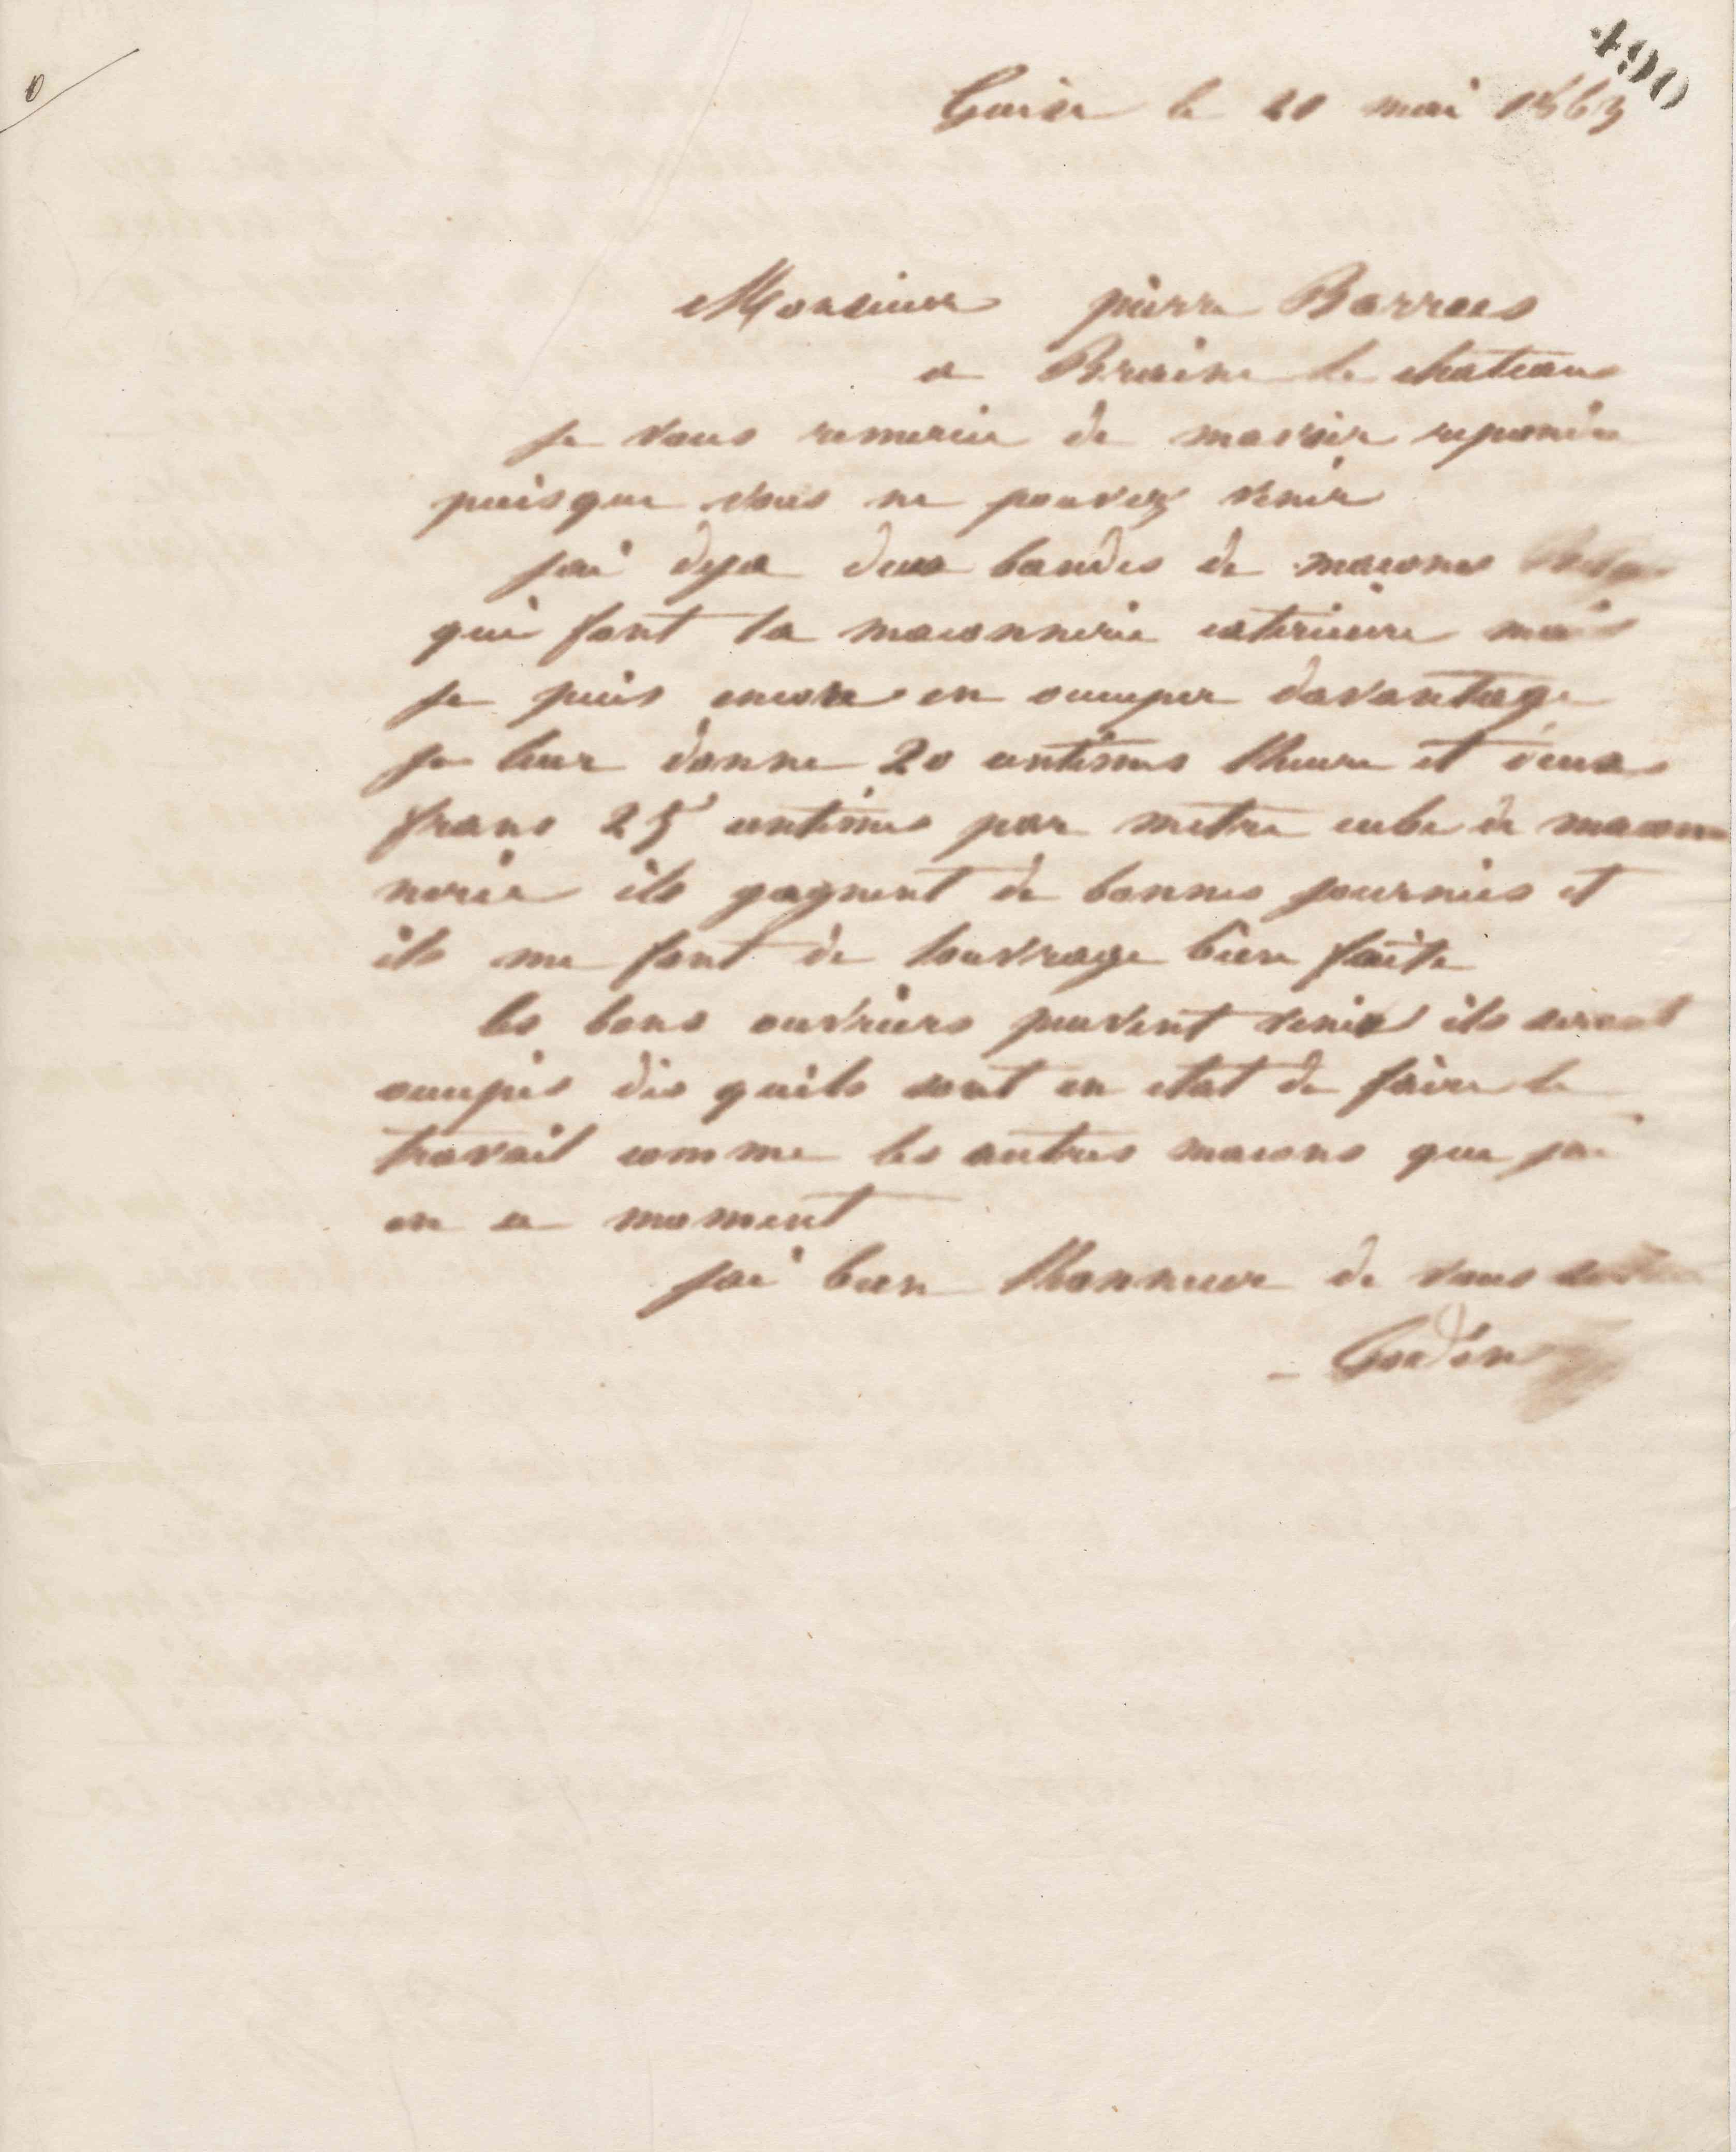 490
Guise le 20 mai 1863
Monsieur pierre Barraes
a Braine le chateau
je vous remercie de mavoir repondu
puisque vous ne pouvez venir
jai deja deux bandes de macons
qui font la maconnerie exterieure mais
je puis encore en occuper davantage
je leur donne 20 centimes lheure et deux
francs 25 centimes par metre cube de macon
nerie ils gagnent de bonnes journées et
ils me font de louvrage bien faite
les bons ouvriers peuvent venir ils seront
occupés dès quils sont en etat de faire le
travail comme les autres macons que jai
en ce moment
jai bien lhonneur de vous
Godin